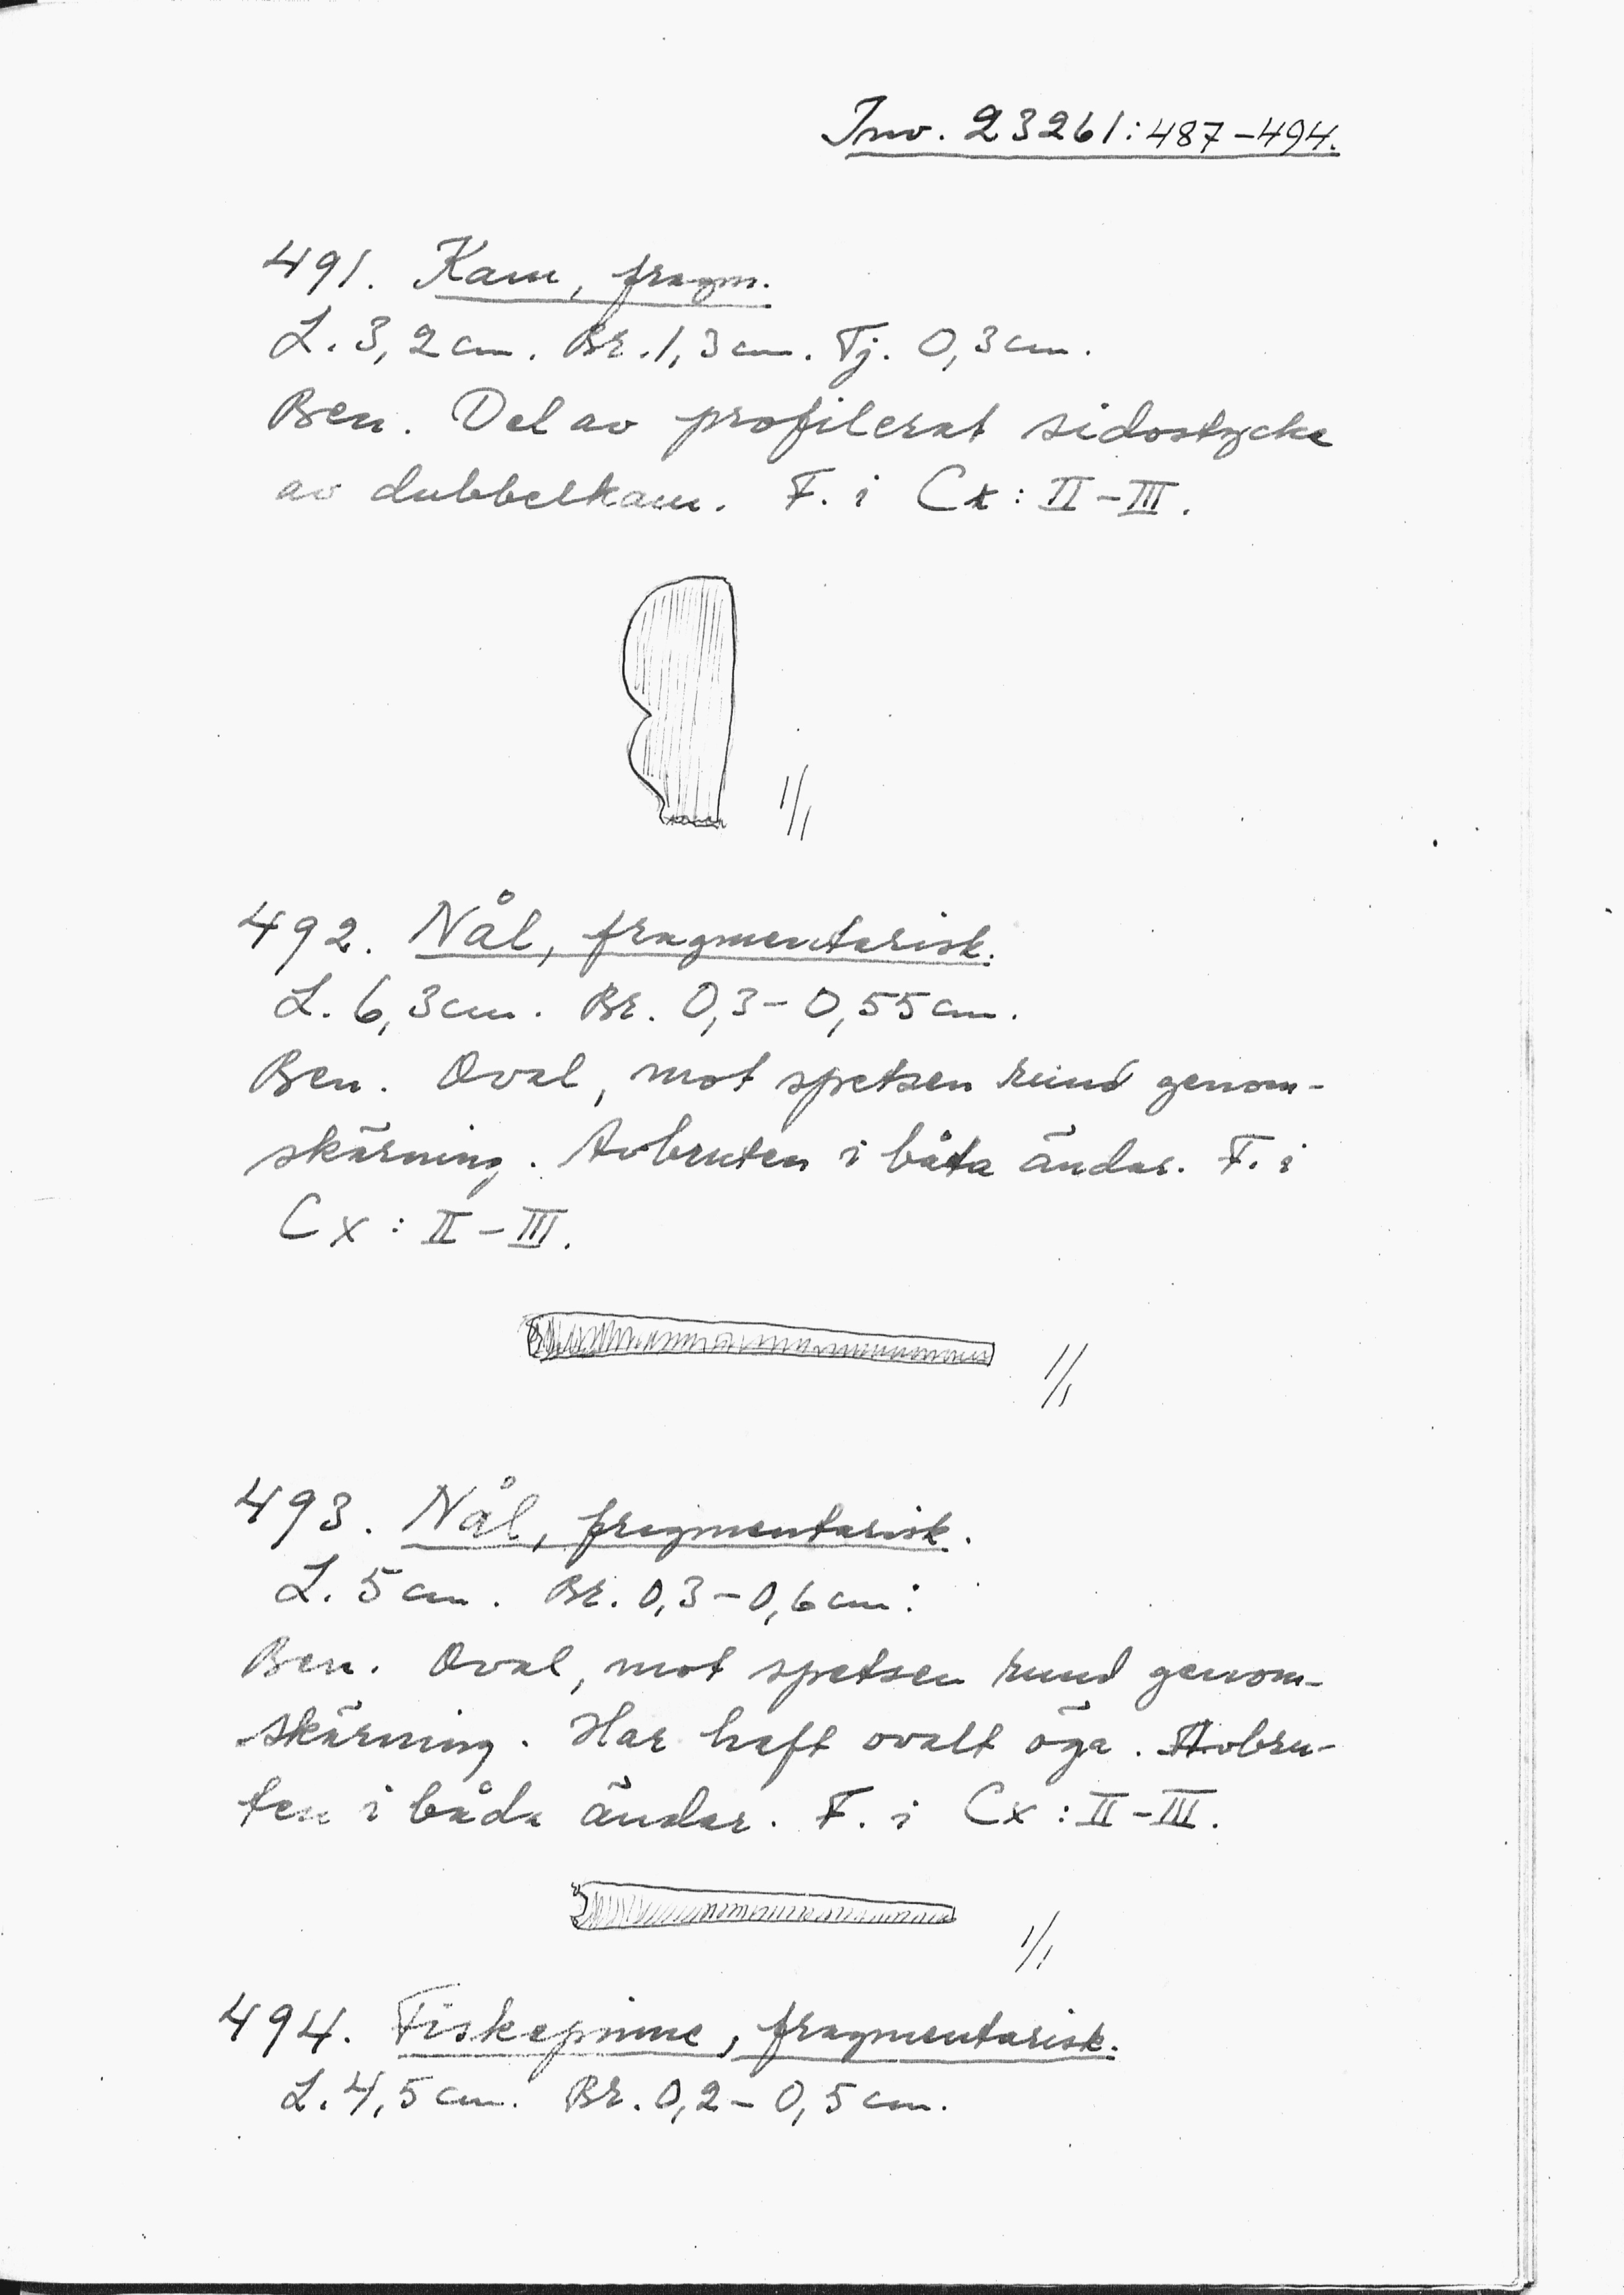 Inv. 23261:487-494.
491. Kam, fragm.
L. 3,2 cm. Br. 1,3 cm. Tj. 0,3 cm.
Ben. Del av profilerat sidostycke
av dubbelkam. F. i Cx: II-III.
1/1
492. Nål, fragmentarisk.
L. 6,3 cm. Br. 0,3-0,55 cm.
Ben. Oval, mot spetsen rund genom-
skärning. Avbruten i båta ändar. F. i
Cx: II-III.
1/1
493. Nål, fragmentarisk.
L. 5 cm. Br. 0,3-0,6 cm.
Ben. Oval, mot spetsen rund genom-
skärning. Har haft ovalt öga. Avbru-
ten i båda ändar. F. i Cx: II-III.
1/1
494. Fiskepinne, fragmentarisk.
L. 4,5 cm. Br. 0,2-0,5 cm.